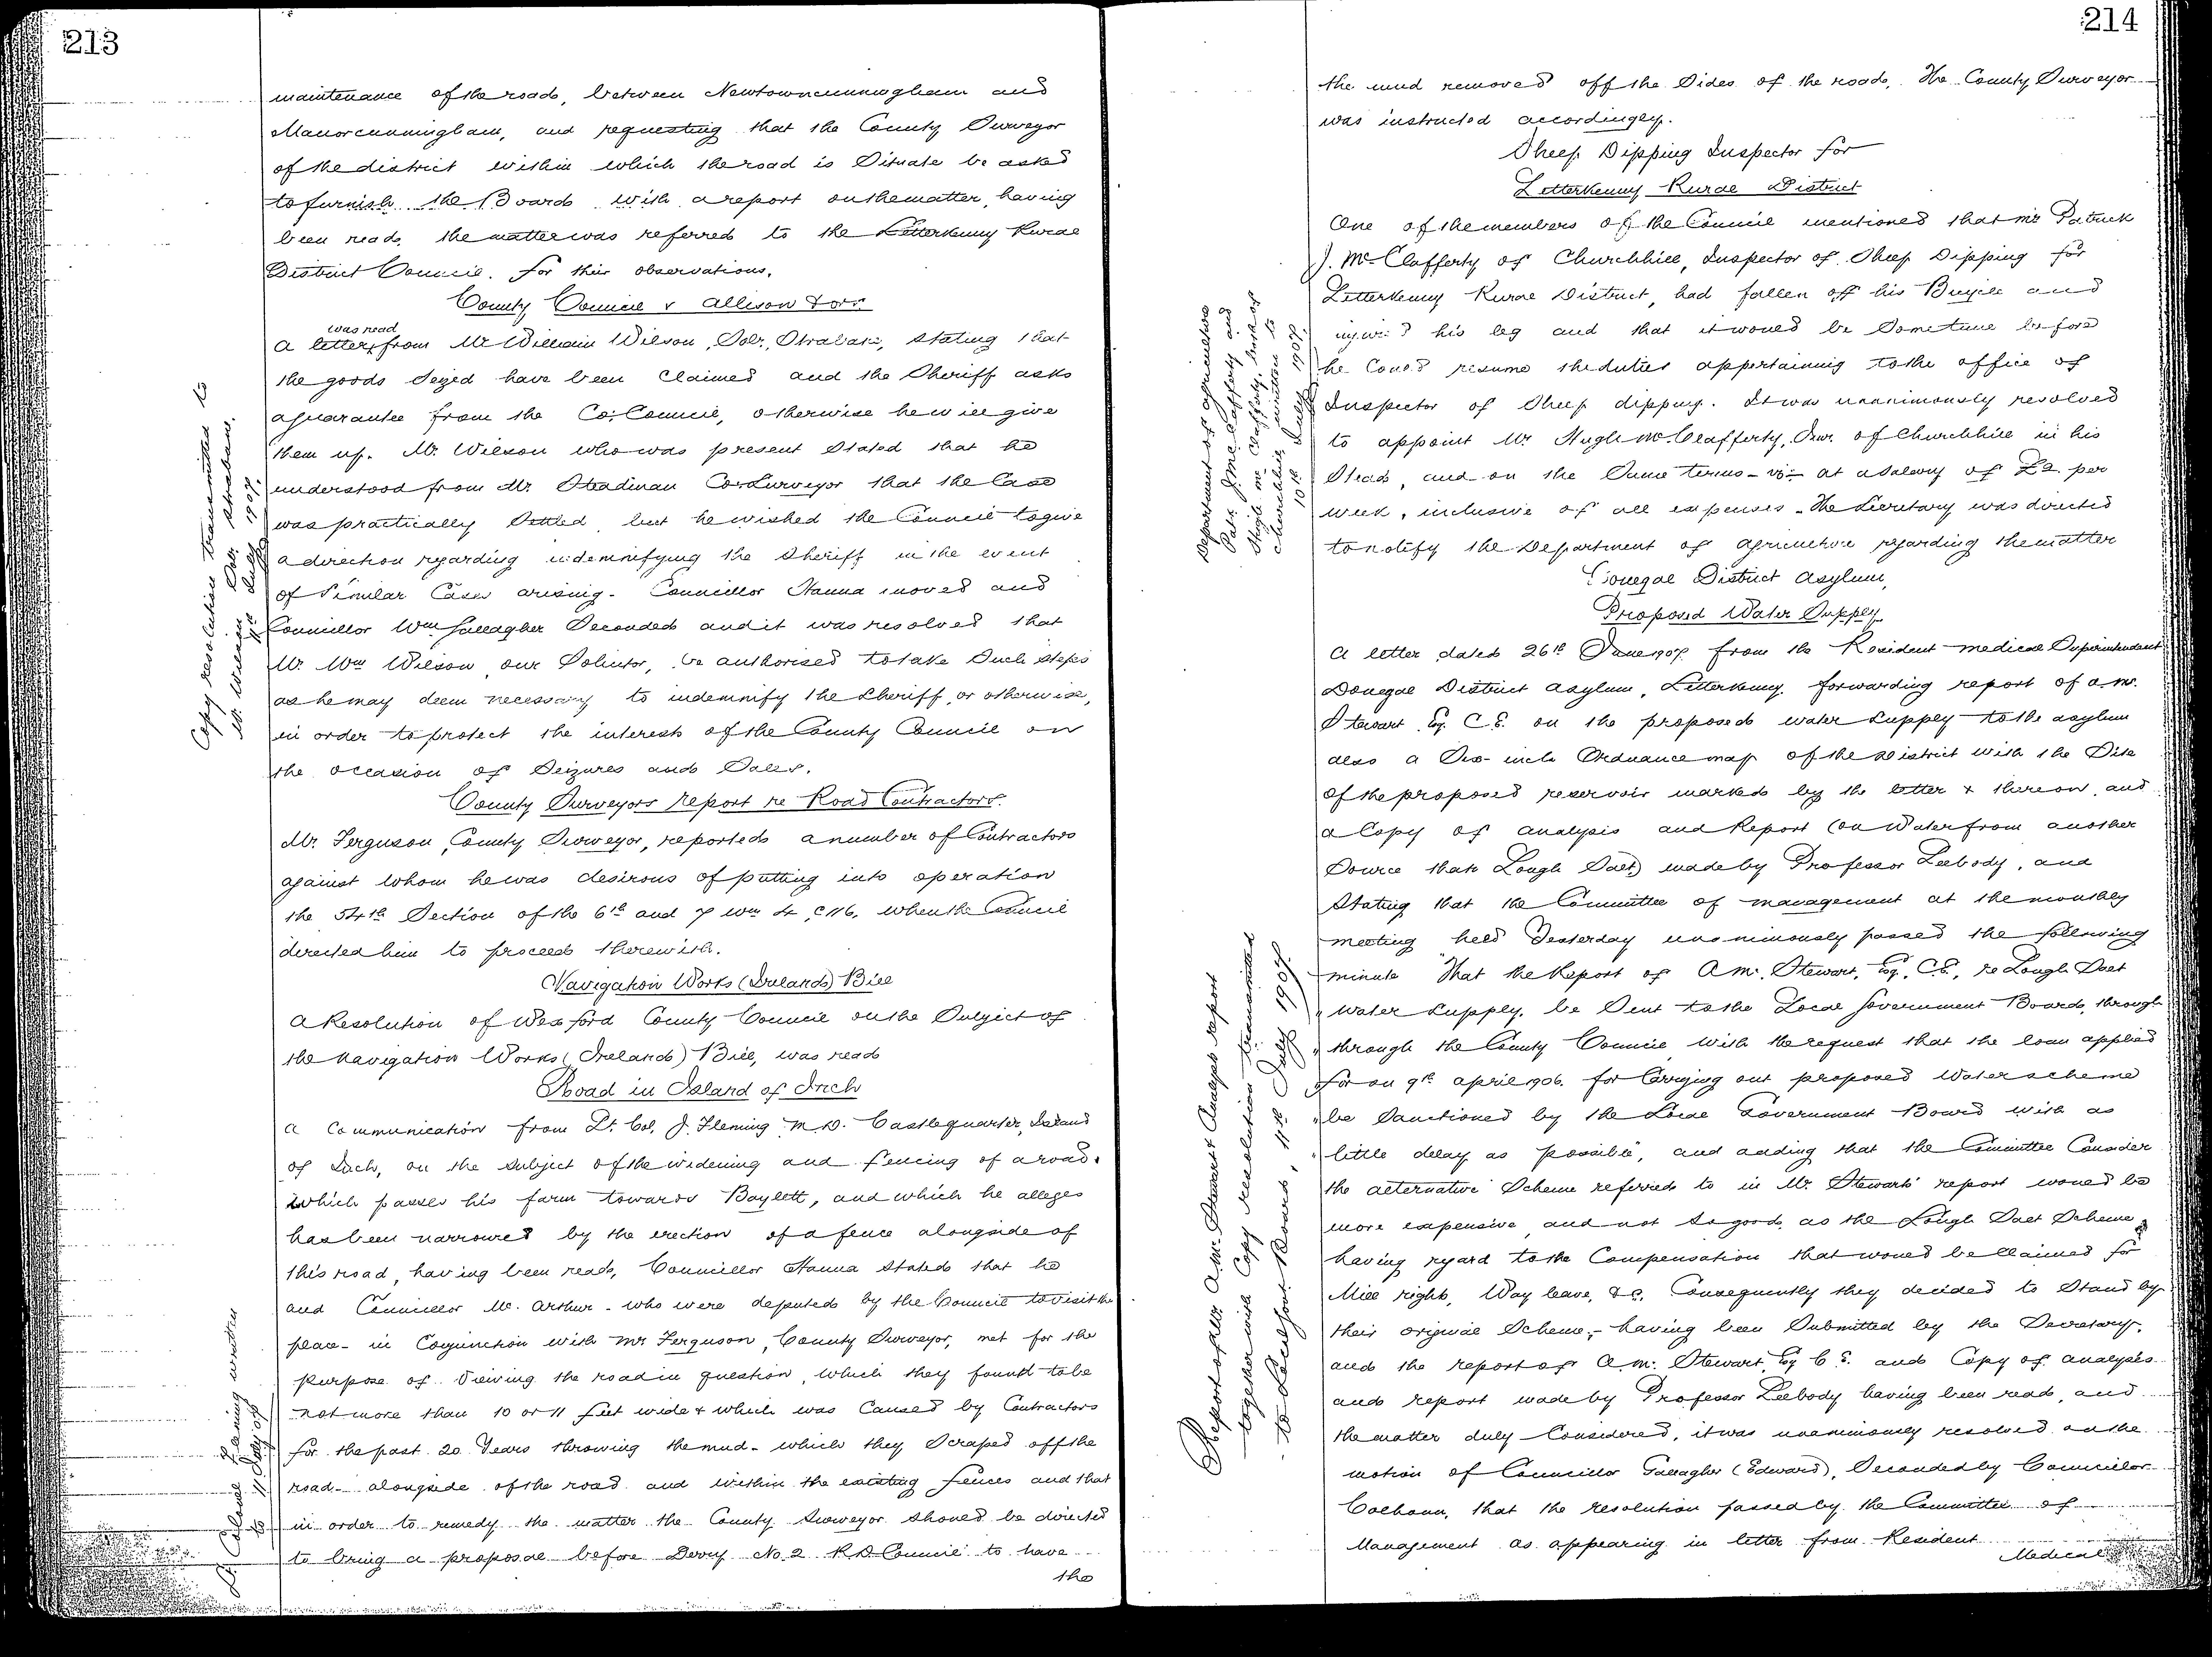 213
maintenance of the road, between Newtowncunningham and
Manorcunningham, and requesting that the County Surveyor
of the district within which the road is Situate be asked
to furnish the Board with a report on the matter, having
been read, the matter was referred to the Letterkenny Rural
District Council. for their observations.
County Council v Allison & ors.
was read
A letter from Mr William Wilson, Solr, Strabane, stating that
the goods Seized have been Claimed and the Sheriff asks
a guarantee from the Co: Council, otherwise he will give
them up. Mr. Wilson who was present Stated that he
understood from Mr Steadman Co: Surveyor that the Case
was practically Settled, but he wished the Council to give
a direction regarding indemnifying the Sheriff in the event
of Similar Cases arising. Councillor Hanna moved and
Councillor Wm Gallagher Seconded and it was resolved that
Mr. Wm Wilson our Solicitor, be authorised to take Such steps
as he may deem necessary to indemnify the Sheriff, or otherwise,
in order to protect the interests of the County Council on
the occasion of Seizures and Sales.
Copy resolution transmitted to
Mr. Wilson Solr. Strabane,
11th July 1907.
County Surveyors report re Road Contractors.
Mr. Ferguson, County Surveyor, reported a number of Contractors
against whom he was desirous of putting into operation
the 54th Section of the 6th and 7 Wm 4, C 116, when the Council
directed him to proceed therewith.
Navigation Works (Ireland) Bill
A Resolution of Wexford County Council on the Subject of
the Navigation Works (Ireland) Bill, was read
Road in Island of Inch
A Communication from Lt. Col. J. Fleming M.D. Castlequarter, Island
of Inch, on the subject of the widening and fencing of a road.
which passes his farm towards Baylett, and which he alleges
has been narrowed by the erection of a fence alongside of
this road, having been read, Councillor Hanna Stated that he
and Councillor Mc. Arthur - who were deputed by the Council to visit the
place - in Conjunction with Mr Ferguson, County Surveyor, met for the
purpose of Viewing the road in question, which they found to be
not more than 10 or 11 feet wide & which was Caused by Contractors
for the past 20 Years throwing the mud - which they Scraped off the
road - alongside of the road and within the existing fences and that
in order to remedy the matter the County Surveyor should be directed
to bring a proposal before Derry No. 2 R D Council to have
the
Lt. Colonel Fleming written
to 11 July 07
214
the mud removed off the Sides of the road. The County Surveyor
was instructed accordingly.
Sheep Dipping Inspector for
Letterkenny Rural District
One of the members of the Council mentioned that Mr Patrick
J. McClafferty of Churchhill, Inspector of Sheep Dipping for
Letterkenny Rural District, had fallen off his Bicycle and
injured his leg and that it would be Sometime before
he Could resume the duties appertaining to the office of
Inspector of Sheep dipping. It was unanimously resolved
to appoint Mr Hugh McClafferty, Junr. of Churchhill in his
Stead, and on the Same terms - viz - at a Salary of £2 per
week, inclusive of all expenses - The Secretary was directed
to notify the Department of Agriculture regarding the matter
Department of Agriculture
Patk J McClafferty and
Hugh McClafferty, Junr of
Churchhill written to
10th July 1907.
Donegal District Asylum,
Proposed Water Supply
A letter dated 26th June 1907 from the Resident Medical Superintendent
Donegal District Asylum, Letterkenny. forwarding report of A.M.
Stewart Esq. C.E. on the proposed water Supply to the asylum
also a Six-inch Ordnance map of the District with the Site
of the proposed reservoir marked by the letter x thereon, and
a Copy of analysis and Report (on Water from another
Source than Lough Salt) made by Professor Leebody, and
Stating that the Committee of management at the monthly
meeting held Yesterday unanimously passed the following
minute "That the Report of A.M. Stewart, Esq., C.E, re Lough Salt
" water Supply, be Sent to the Local Government Board, through
" through the County Council with the request that the loan applied
"for on 9th April 1906. for Carrying out proposed Water scheme
" be Sanctioned by the Local Government Board with as
" little delay as possible", and adding that the Committee Consider
the alternative Scheme referred to in Mr. Stewarts' report would be
more expensive and not so good, as the Lough Salt Scheme,
having regard to the Compensation that would be Claimed for
Mill rights, Way leave, &c. Consequently they decided to Stand by
their original Scheme, - having been Submitted by the Secretary,
and the report of A.M. Stewart, Esq C.E. and Copy of analysis
and report made by Professor Leebody having been read, and
the matter duly Considered, it was unanimously resolved on the
motion of Councillor Gallagher (Edward), Seconded by Councillor
Colhoun, that the resolution passed by the Committee of
Management as appearing in letter from Resident
Medical
Report of Messrs A.M. Stewart & Analysis report
together with Copy resolution transmitted
to Local Govt. Board, 11th July 1907.